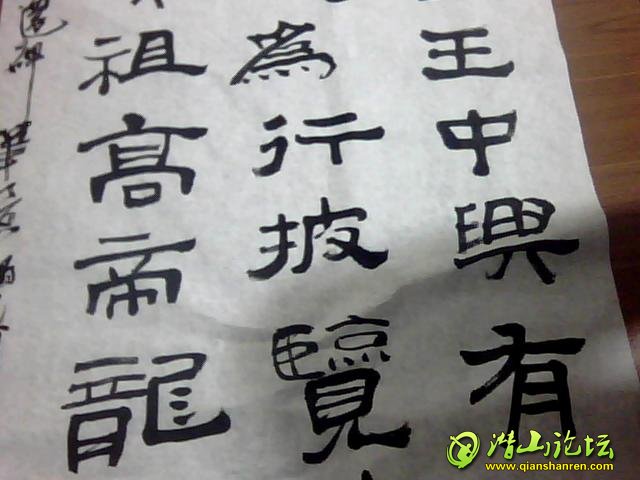 王中興有
為行披覽
祖高帝龍
潜山论坛
www.qianshanren.com